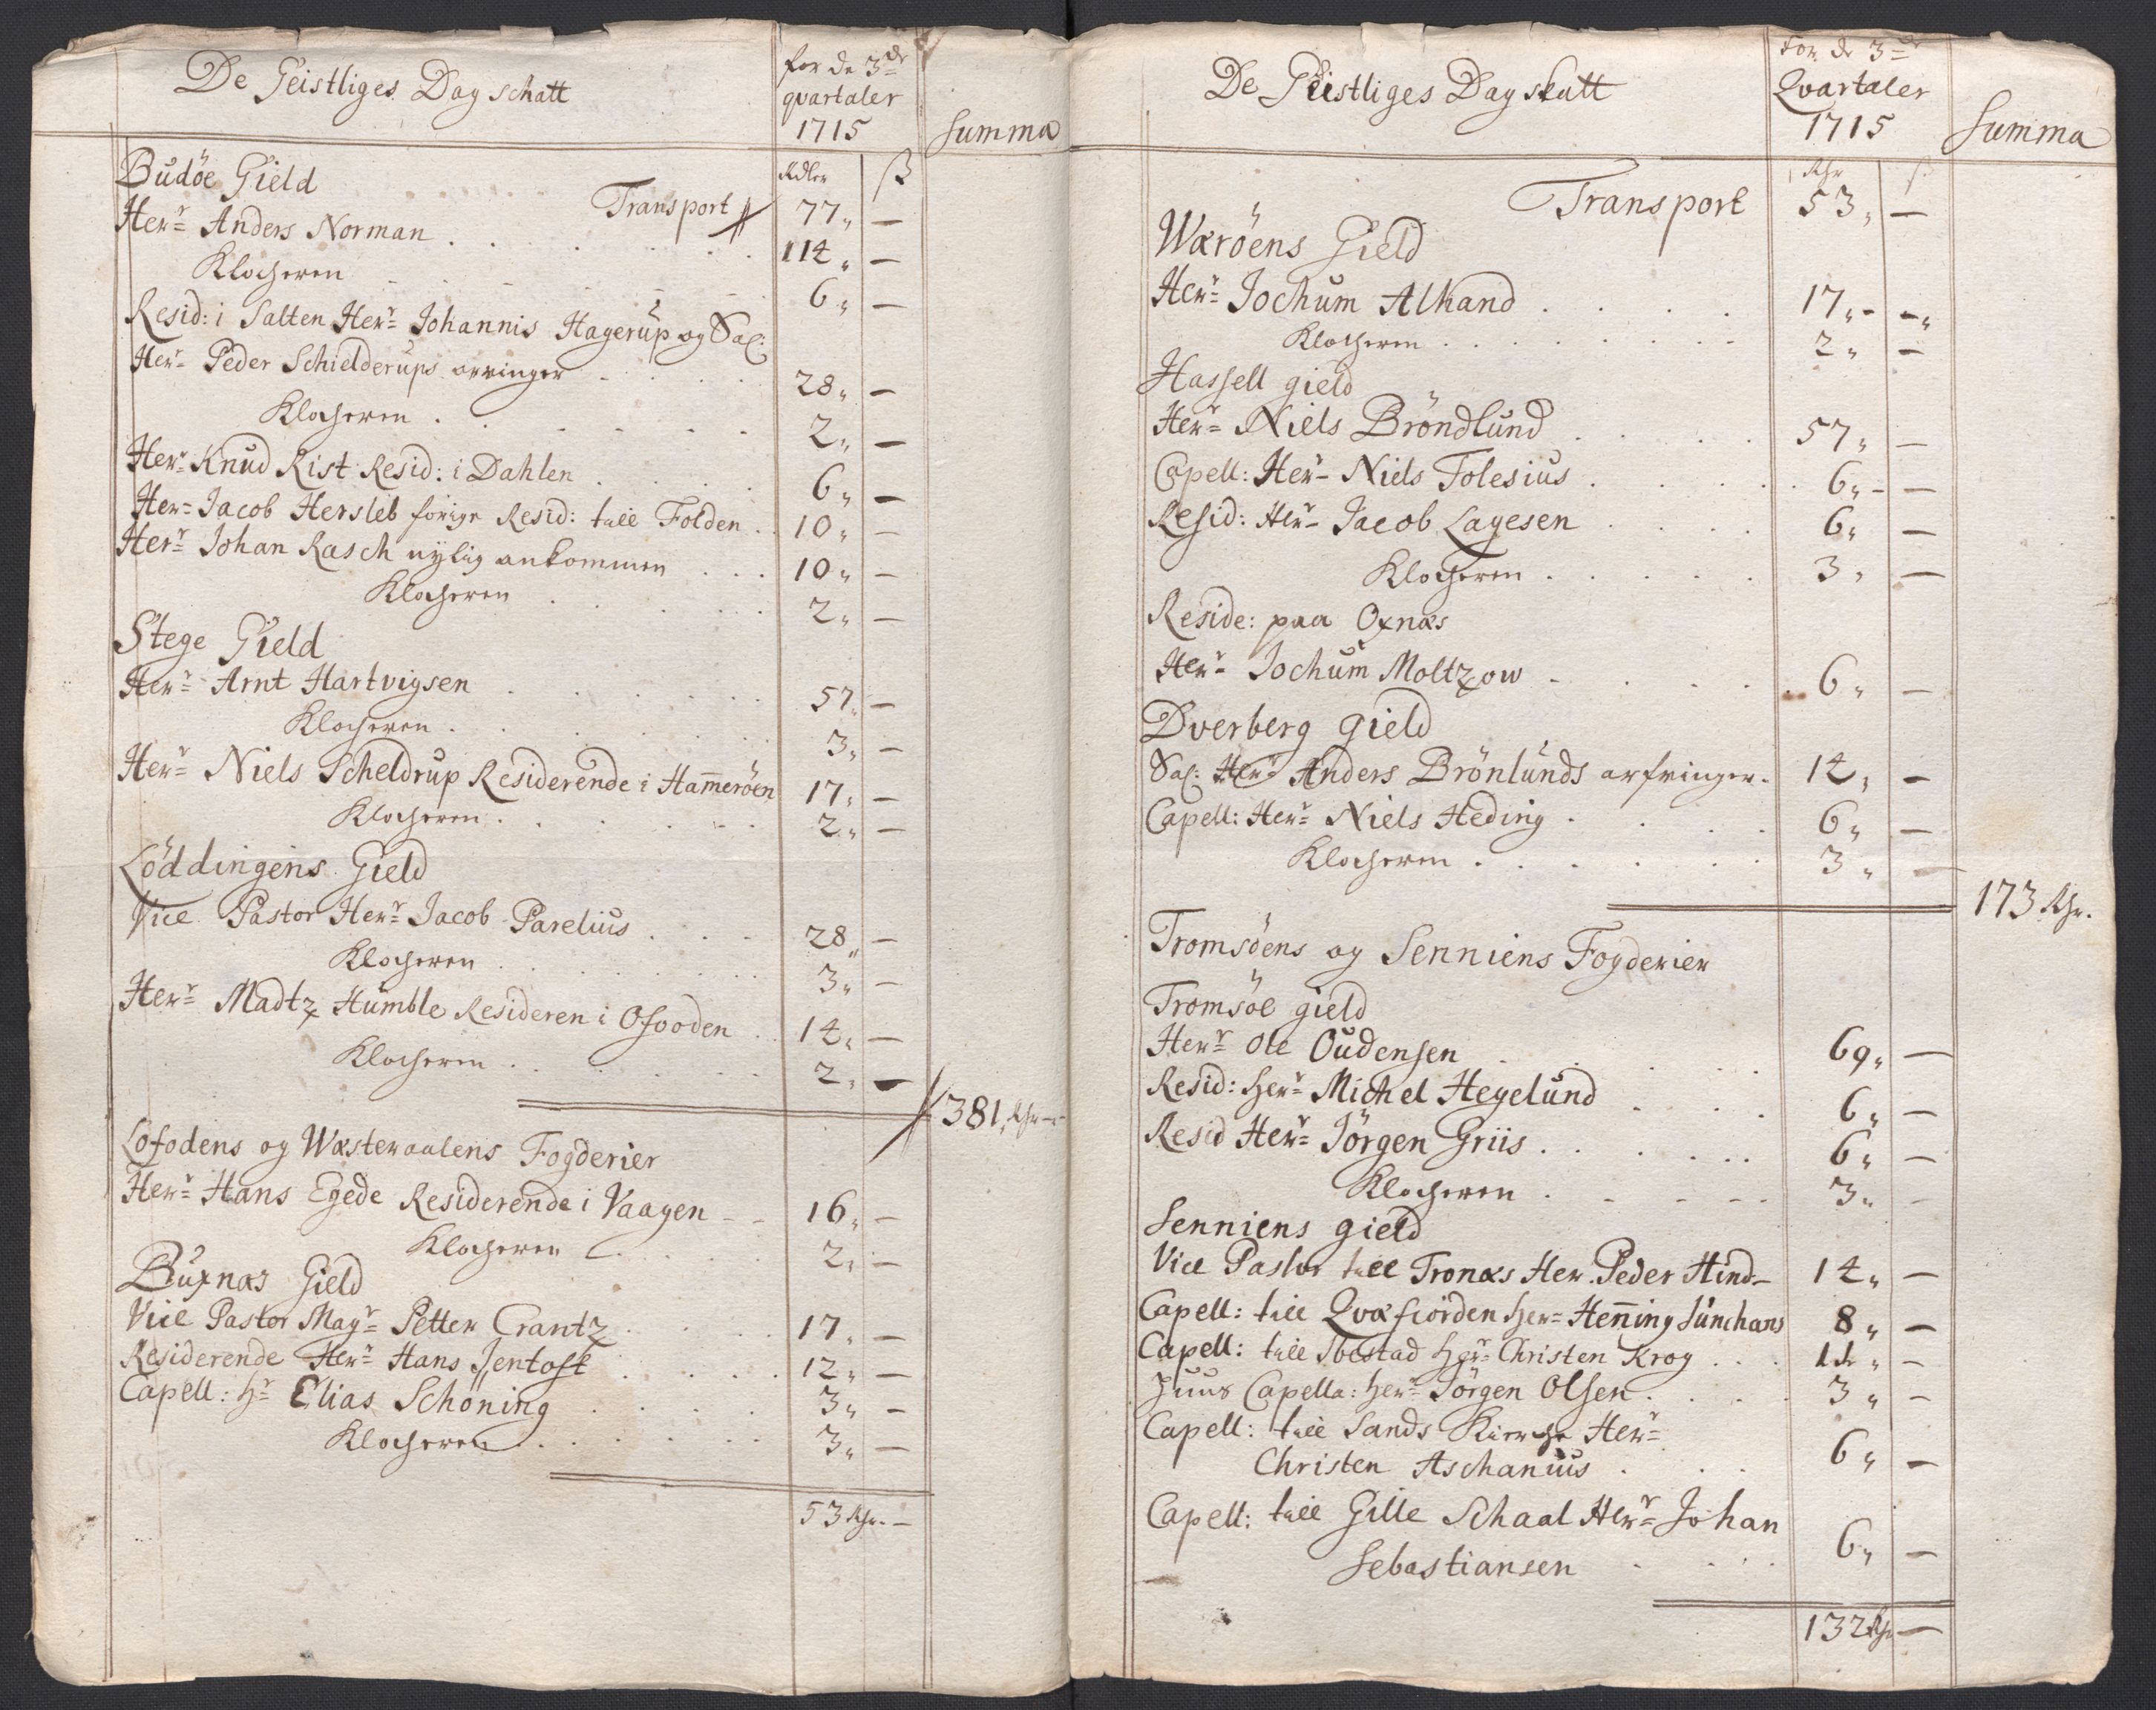 De Geistliges Dag schatt
for de 3de
qvartaler
1715
Summa
Rdler ß
Budöe Gield
Transport 77 „ —
Herr Anders Norman . . . 114 „ —
Klocheren 6 „ —
Resid: i Salten Herr Johannis Hagerup og Sal:
Herr Peder Schielderups arvinger 28 „ —
Klocheren . 2 „ —
Herr Knud Rist Resid: i Dahlen 6 „ —
Herr Jacob Hersleb forige Resid: till Folden . 10 „ —
Herr Johan Rasch nylig ankommen . . . 10 „ —
Klocheren 2 „ —
Stege Gield
Herr Arnt Hartvigsen 57 „ —
Klocheren . 3 „ —
Herr Niels Scheldrup Residerende i Ham̅eröen 17 „ —
Klocheren . 2 „ —
Löddingens Gield
Vice Pastor Herr Jacob Parelius . . . 28 „ —
Klocheren 3 „ —
Herr Madtz Humble Resideren i Ofooden . 14 „ —
Klocheren . 2 „ —
381 „ Rhr —
Lofodens og Wæsteraalens Fogderier
Herr Hans Egede Residerende i Vaagen - - 16 „ —
Klocheren 2 „ —
Buxnæs Gield
Vice Pastor Magr Petter Crantz . . . 17 „ —
Residerende Herr Hans Jentoft . . . 12 „ —
Capell: Hr Elias Schöning . . . 3 „ —
Klocheren . . . 3 „ —
53 Rhr. —
De Geistliges Dag skatt
For de 3de
Qvartaler
1715
Summa
Rhr ß
Transport 53 „ —
Wæröens Gield
Herr Jochum Alhand . . . 17 „ — —„
Klocheren . . . 2 „ —
Hassell gield
Herr Niels Bröndlund . . . 57 „ —
Capell: Herr Niels Tolesius . . . 6 „ — —
Resid: Herr Jacob Lagesen . . . 6 „ —
Klocheren . . . 3 „ —
Reside: paa Oxnæs
Herr Jochum Moltzow . . . 6 „ —
Dverberg gield
Sal: Herr Anders Brönlunds arfvinger . 14 „ —
Capell: Herr Niels Heding . . . 6 „ —
Klocheren . . . 3 „ —
173 Rhr.
Tromsöens og Senniens Fogderier
Tromsöe gield
Herr Ole Oudensen . . . 69 „ —
Resid: Herr Michel Hegelund . . . 6 „ —
Resid Herr Jörgen Griis . . . 6 „ —
Klocheren . . . 3 „ —
Senniens gield
Vice Pastor till Tronæs Her. Peder Hind- 14 „ —
Capell: till Qvæfiörden Herr Hen̅ing Junchans 8 „ —
Capell: till Ibestad Herr Christen Krog . . . 11 „ —
Huus Capella: Herr Jörgen Olsen . . . 3 „ —
Capell: till Sands Kierche Herr
Christen Aschanius . . . 6 „ —
Capell: till Gille Schaal Herr Johan
Sebastiansen . . . 6 „ —
132 Rhr —